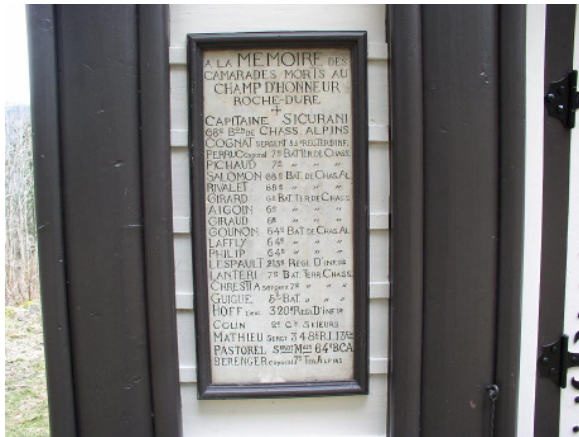 A LA MEMOIRE DES
CAMARADES MORTS AU
CHAMP D'HONNEUR
ROCHE-DURE
CAPITAINE SICURANI
68e Bon DE CHASS. ALPINS
COGNAT SERGENT REG. TER D'INF.
PERRUC Caporal 7e BAT TER DE CHASS.
PICHAUD 7e " " "
SALOMON 68e BAT. DE CHAS. AL.
RIVALET 68e " " "
GIRARD 6e BAT. TER DE CHASS.
AIGOIN 6e " " "
GIRAUD 6e " " "
GOUNON 64e BAT DE CHAS. AL.
LAFFLY 64e " " "
PHILIP 64e " " "
LESPAULT REGt D'INFie
LANTERI 7e BAT. TERR CHASS.
CHRESTIA sergent 7e " " "
GUIGUE BAT. " " "
HOFF 320e REGt D'INFie
COLIN 2e Cie SKIEURS
MATHIEU SERGT 348e R.I. 13e Cie
PASTOREL 64e B.C.A.
BERENGER caporal 7e TER. ALPINS